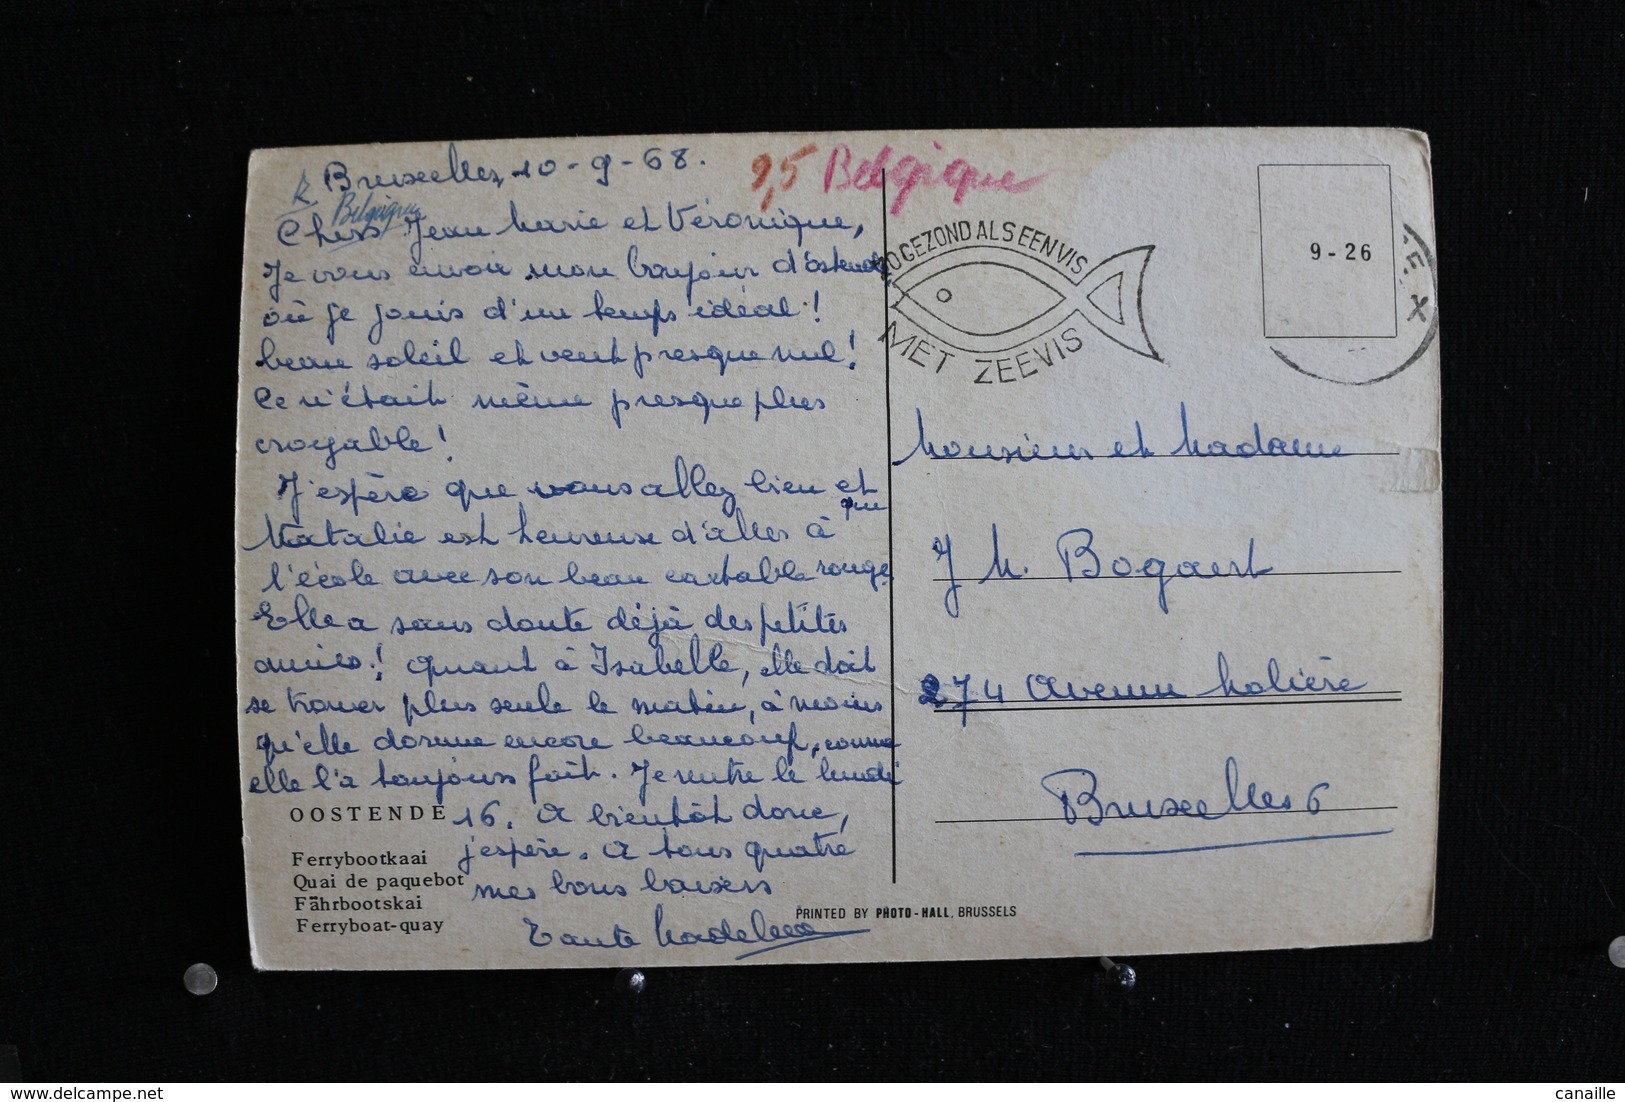 Bruxelles, 10-9-68.
9,5 Belgique
Belgique
Chers Jean Marie et Véronique,
Je vous envoie mon bonjour d'Ostende
où je jouis d'un temps idéal!
beau soleil et vent presque nul!
Ce n'était même presque plus
croyable!
J'espère que vous allez bien et
que
Natalie est heureuse d'aller à
l'école avec son beau cartable rouge
Elle a sans doute déjà des petites
amies! Quant à Isabelle, elle doit
se trouver plus seule le matin, à moins
qu'elle dorme encore beaucoup, comme
elle l'a toujours fait. Je rentre le lundi
16. A bientôt donc,
j'espère. A tous quatre
mes bons baisers
Tante Madeleine
OOSTENDE
Ferrybootkaai
Quai de paquebot
Fährbootskai
Ferryboat-quay
PRINTED BY PHOTO-HALL, BRUSSELS
ZO GEZOND ALS EEN VIS
MET ZEEVIS
9-26
X
Monsieur et Madame
J M. Bogaert
274 Avenue Molière
Bruxelles 6
delcampe.net
canaille